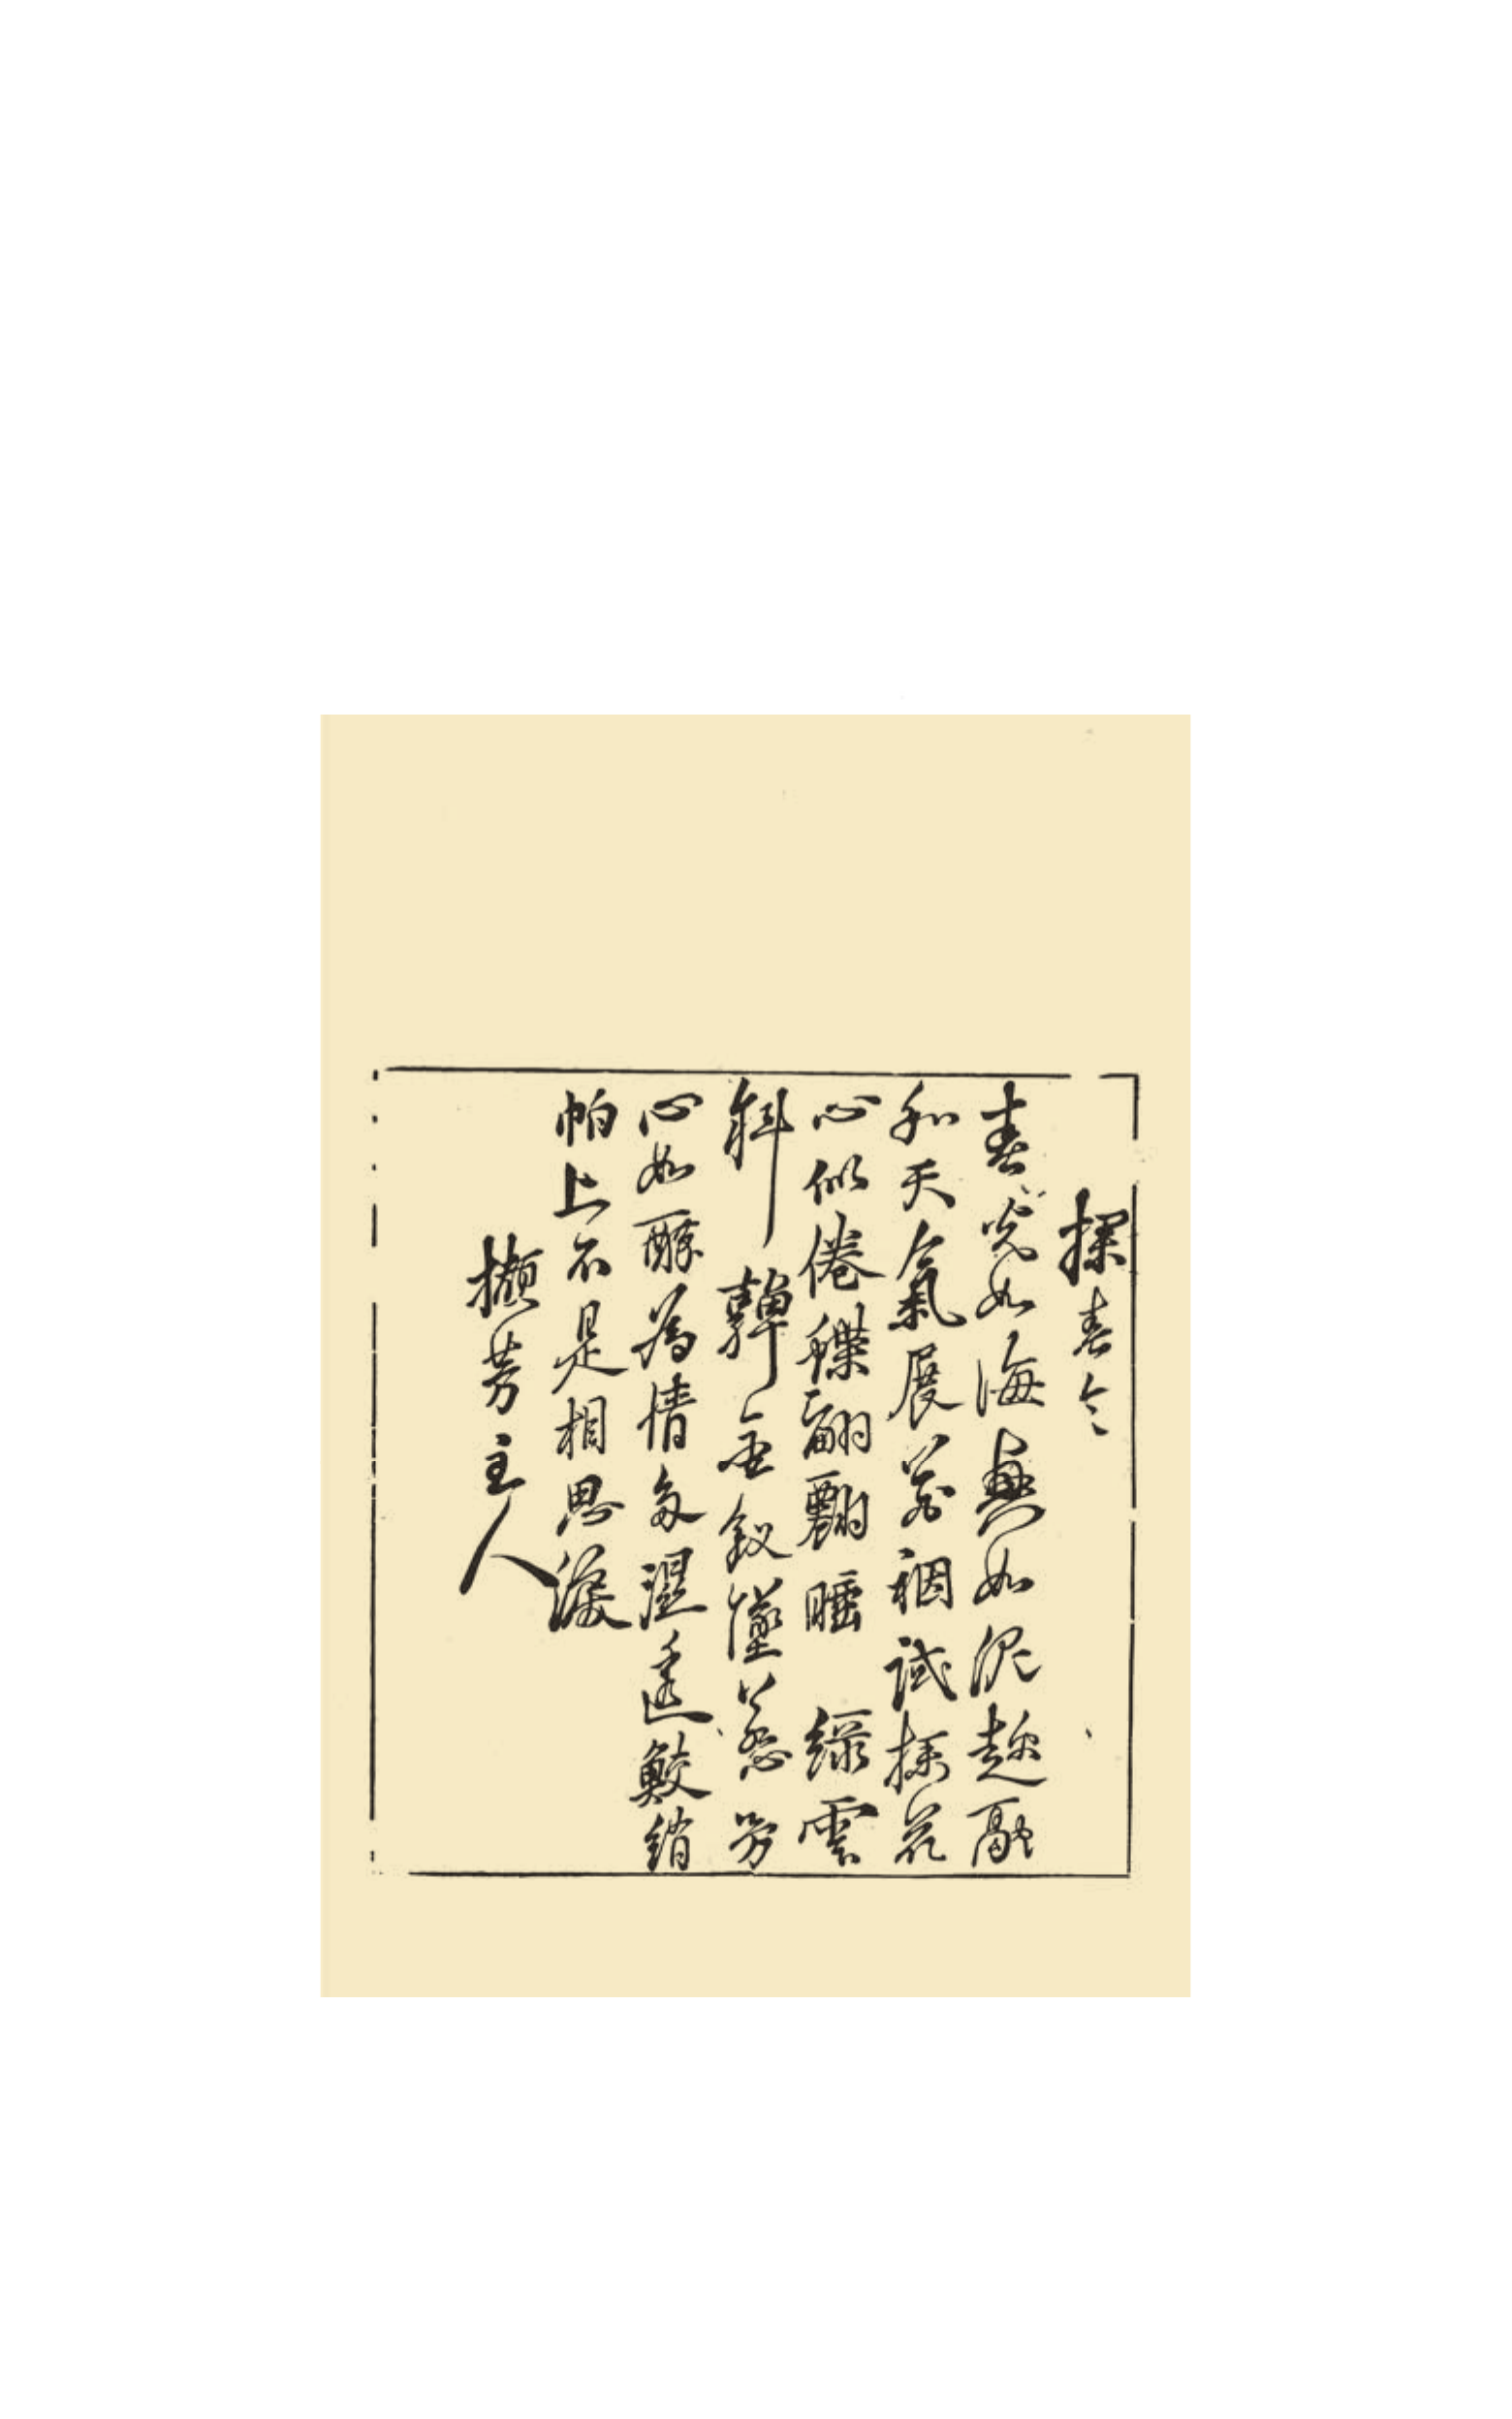 探春令
春光如海興如泥趁融
和天氣展芳裀試探花
心似倦蝶翩翻睡　綠雲
斜嚲金釵墜惹芳
心如醉為情多溼透鮫綃
帕上不是相思淚
擷芳主人